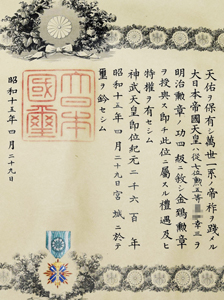 天佑ヲ保有シ萬世一系ノ帝祚ヲ踐メル
大日本帝國天皇ハ從七位勲五等
明治勲章ノ功四級ニ敘シ金鵄勲章
ヲ授與ス即チ此位ニ屬スル禮遇及ヒ
特權ヲ有セシム
神武天皇即位紀元二千六百年
昭和十五年四月二十九日宮城ニ於テ
璽ヲ鈐セシム
大日本國璽
昭和十五年四月二十九日